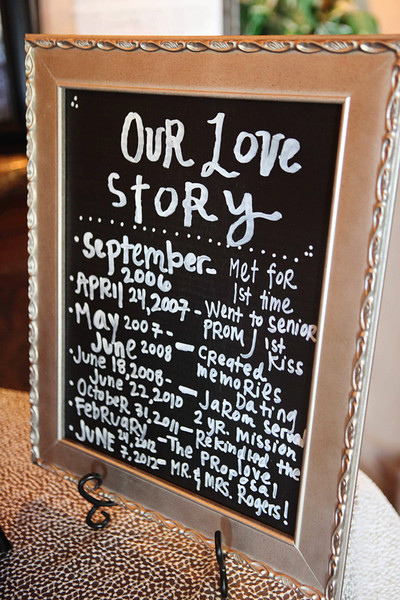 OUR LOVE
STORY
· September 2006 - Met for 1st time
· APRIL 24, 2007 - Went to senior PROM / 1st Kiss
· May 2007 - June 2008 - Created memories Dating
· June 18, 2008 - June 22, 2010 - Jarom served 2 yr. mission
· October 31, 2011 - Rekindled the love
· February 24, 2012 - The Proposal
· JUNE 7, 2012 - MR. & MRS. Rogers!